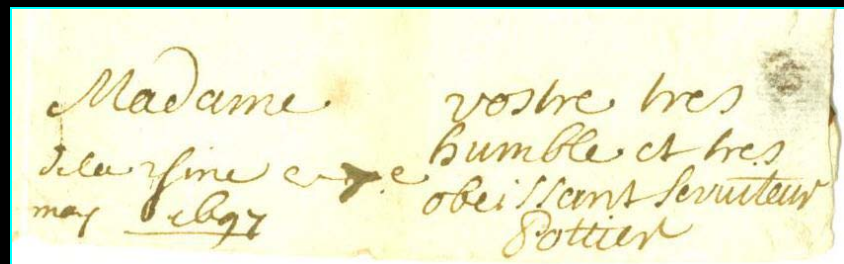 Madame
dela
may 1697
vostre tres
humble et tres
obeissant Serviteur
Pottier